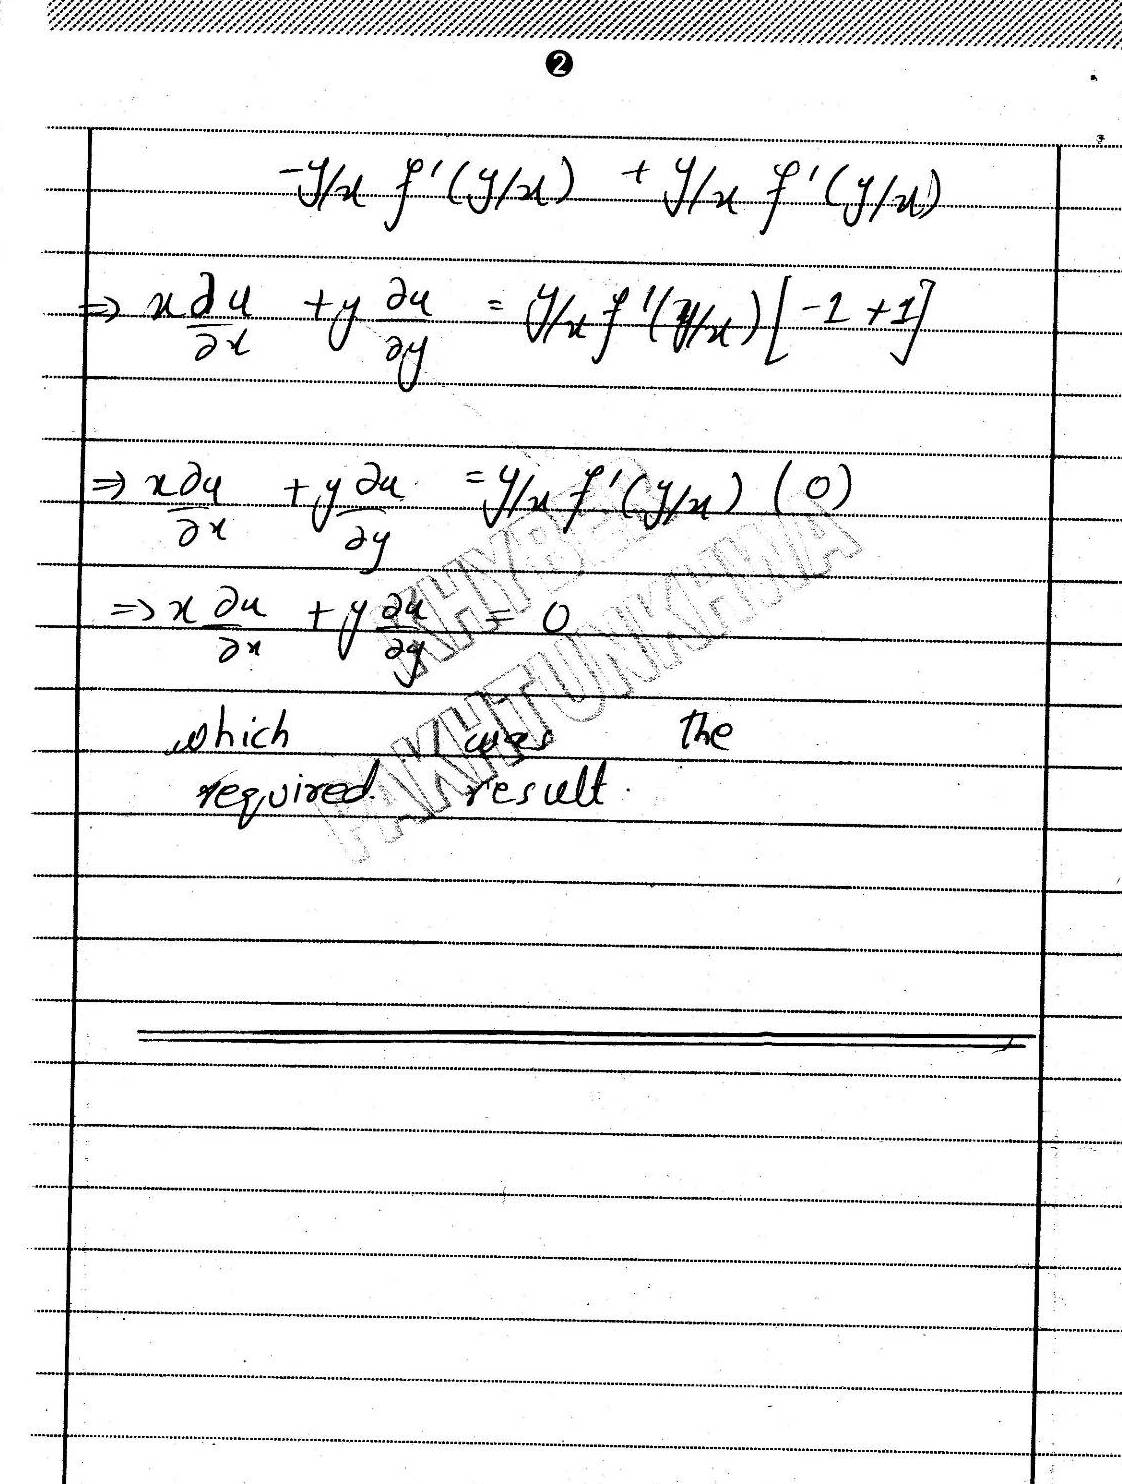 2
-y/x f'(y/x) + y/x f'(y/x)
⇒ x ∂u/∂x + y ∂u/∂y = y/x f'(y/x) [-1 + 1]
⇒ x ∂u/∂x + y ∂u/∂y = y/x f'(y/x) (0)
⇒ x ∂u/∂x + y ∂u/∂y = 0
which was the
required result.
KHYBER
PAKHTUNKHWA